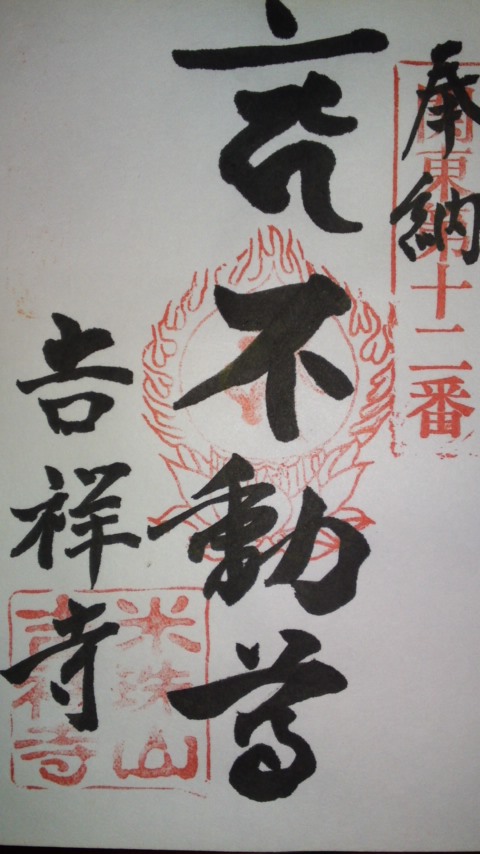 奉納
関東第十二番
不動尊
吉祥寺
米珠山
吉祥寺